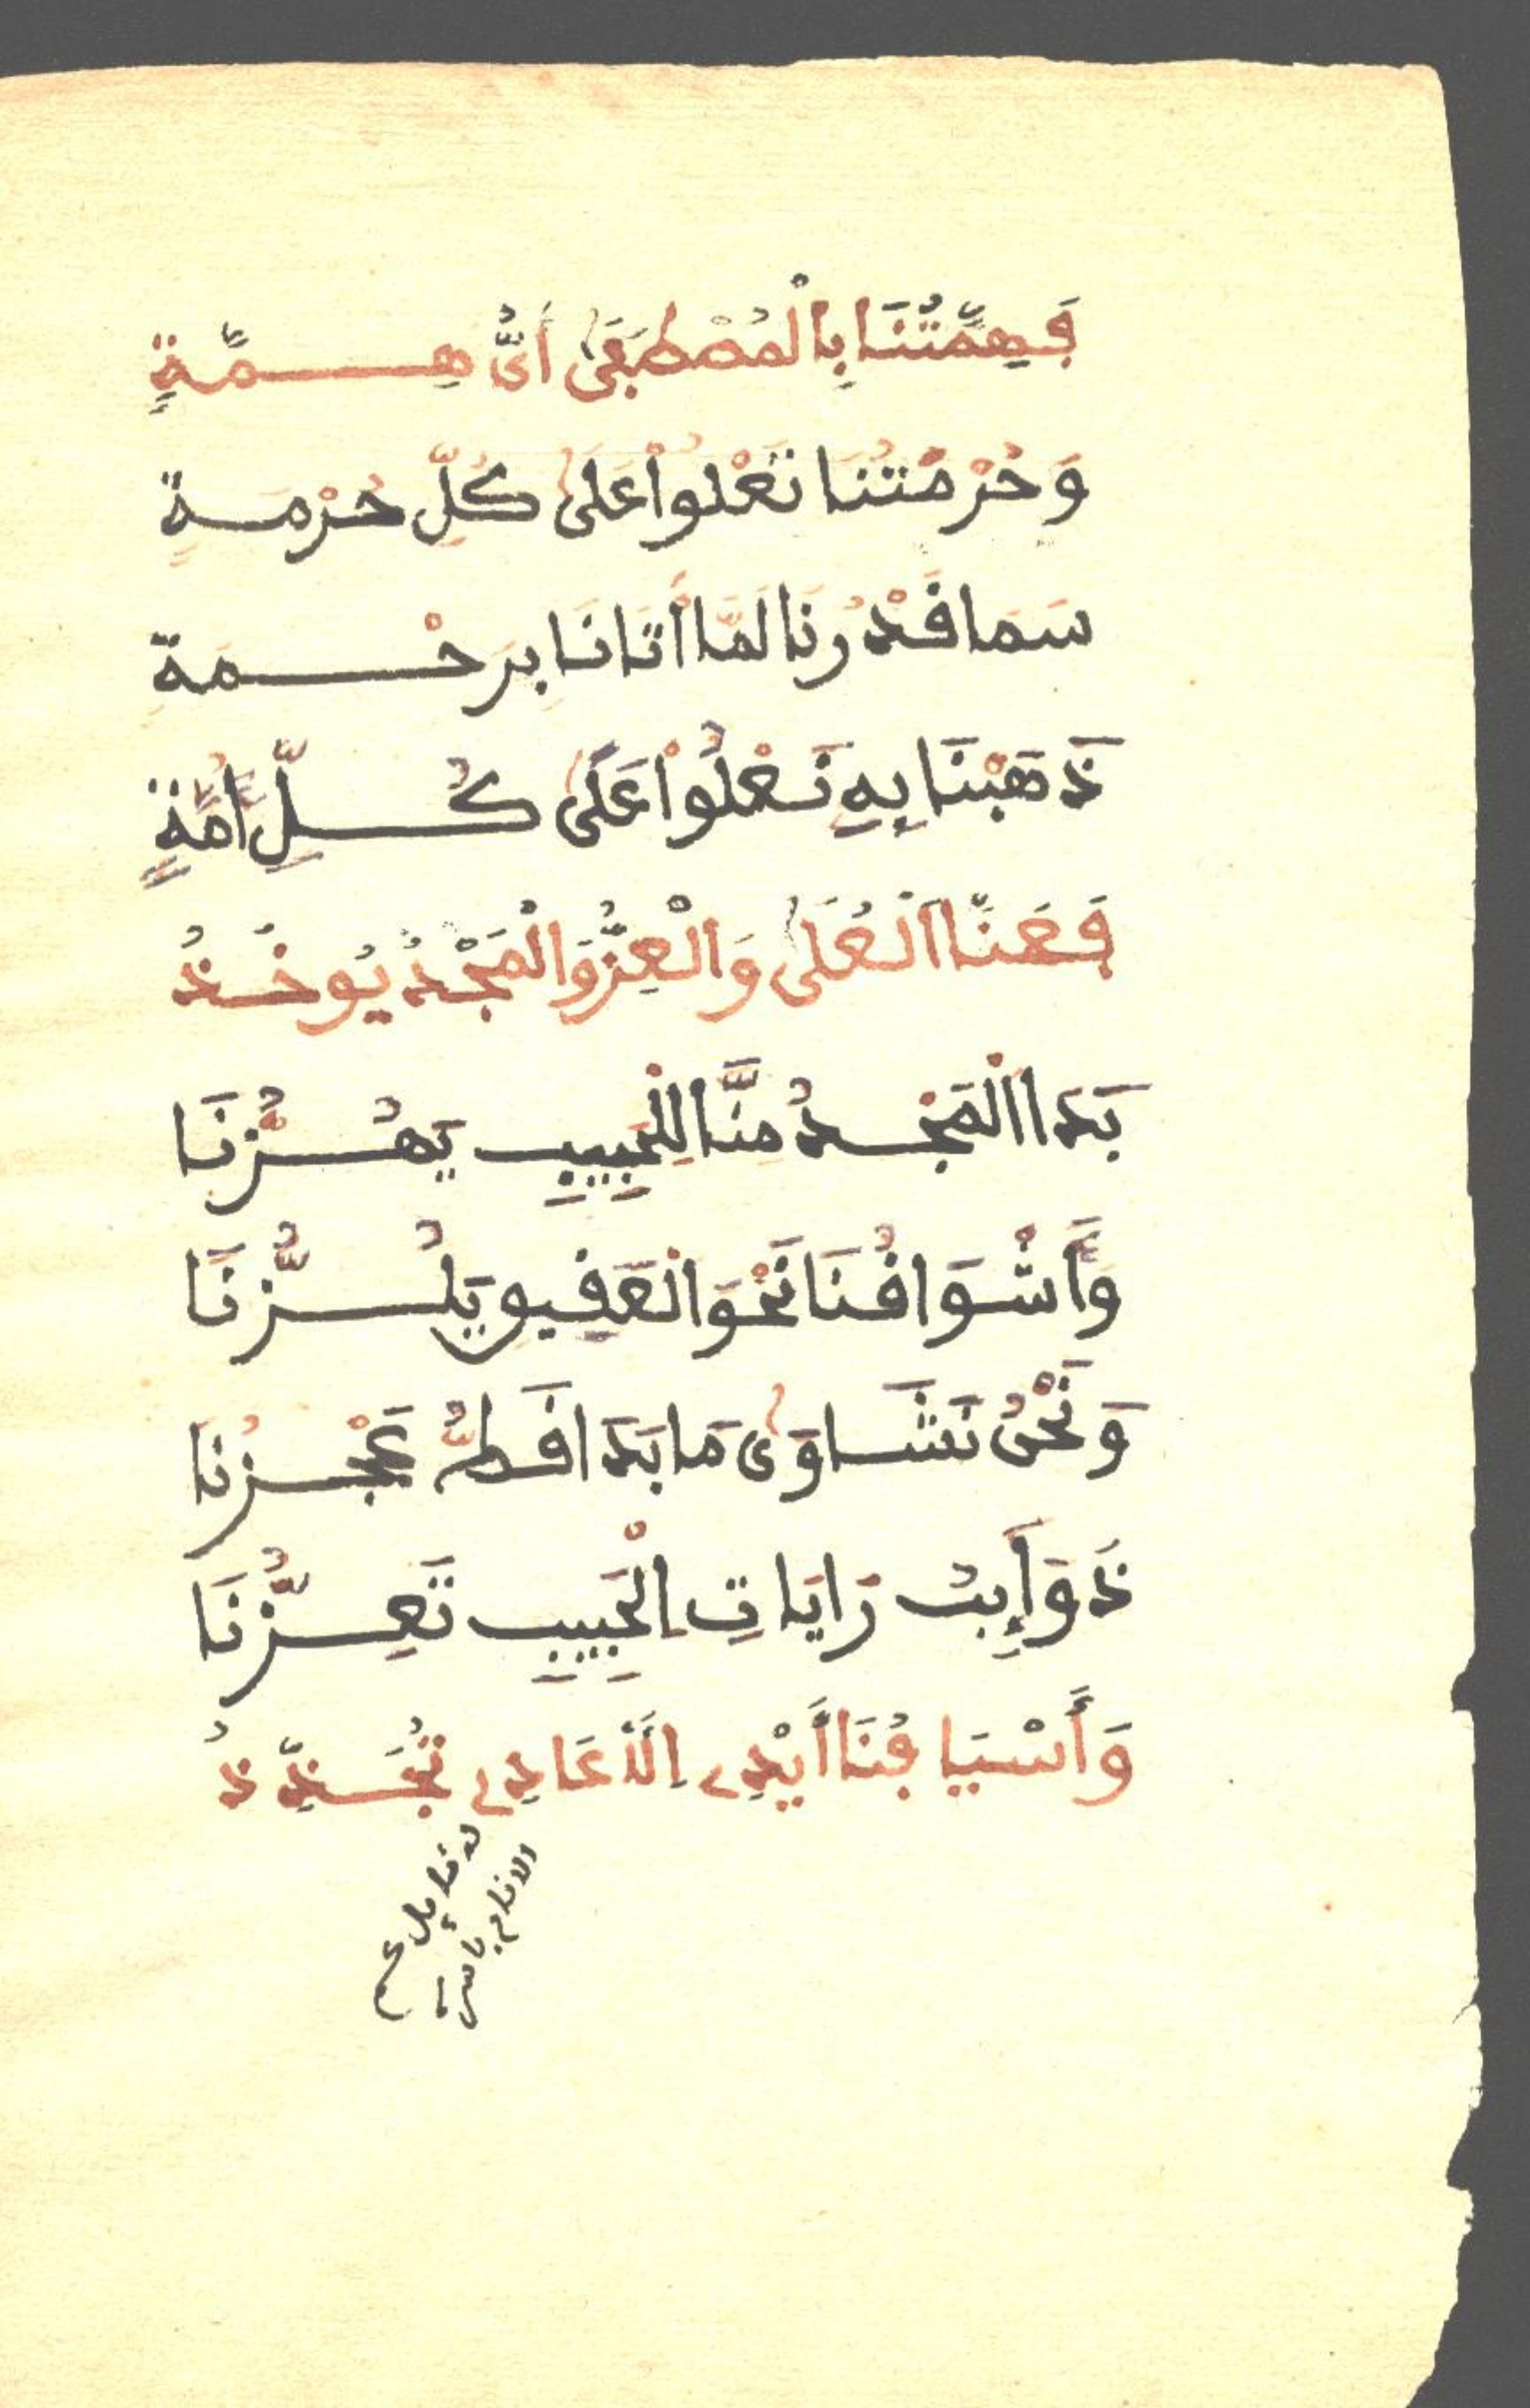 فَهِمَّتُنَا بِالْمُصْطَفَى أَيُّ هِمَّةٍ
وَحُرْمَتُنَا تَعْلُوا عَلَى كُلِّ حُرْمَةٍ
سَمَا قَدْرُنَا لَمَّا أَتَانَا بِرَحْمَةٍ
ذَهَبْنَا بِهِ نَعْلُوا عَلَى كُلِّ أُمَّةٍ
فَعَنَّا الْعُلَى وَالْعِزُّ وَالْمَجْدُ يُوخَذُ
بَدَا الْمَجْدُ مِنَّا لِلْحَبِيبِ يَهُزُّنَا
وَأَشْوَاقُنَا نَحْوَ الْعَقِيقِ تَلُزُّنَا
وَنَحْنُ نَشَاوَى مَا بَدَا قَطُّ عَجْزُنَا
ذَوَائِبُ رَايَاتِ الْحَبِيبِ تَعِزُّنَا
وَأَسْيَافُنَا أَيْدِي الْأَعَادِي تُجَذِّذُ